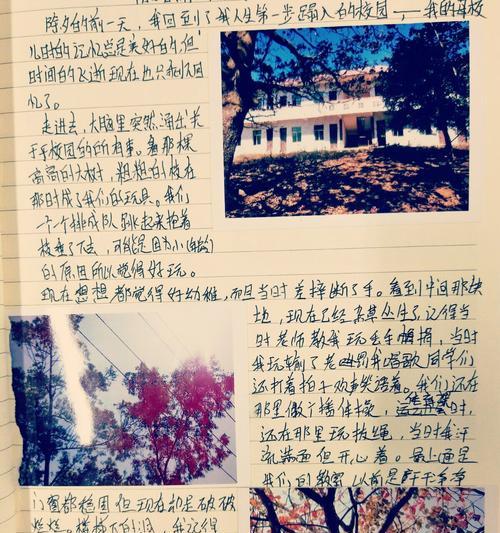 除夕的前一天，我回到了我人生第一步踏入的校园——我的母校
儿时的记忆总是美好的，但
时间的飞逝现在也只剩下回
忆了。
走进去，大脑里突然涌出关
于校园的所有事。看那棵
高高的大树，粗粗的枝在
那时成了我们的玩具。我们
一个个排成队跳起来抱着
枝垂了下去，可能是因为小(年龄)
的原因所以觉得好玩。
现在想想都觉得好幼稚，而且当时差摔断了手。看到中间那块
地，现在已经杂草丛生了，记得当
时老师教我玩
我玩输了老师罚我唱歌同学们
还打着拍子欢声笑语着。我们还在
那里做广播体操，时，
还在那里玩拔绳，当时我汗
流浃面但开心着。最上面是
我们的教室以前是干干净净
门窗都稳固但现在却是破破
烂烂。我记得